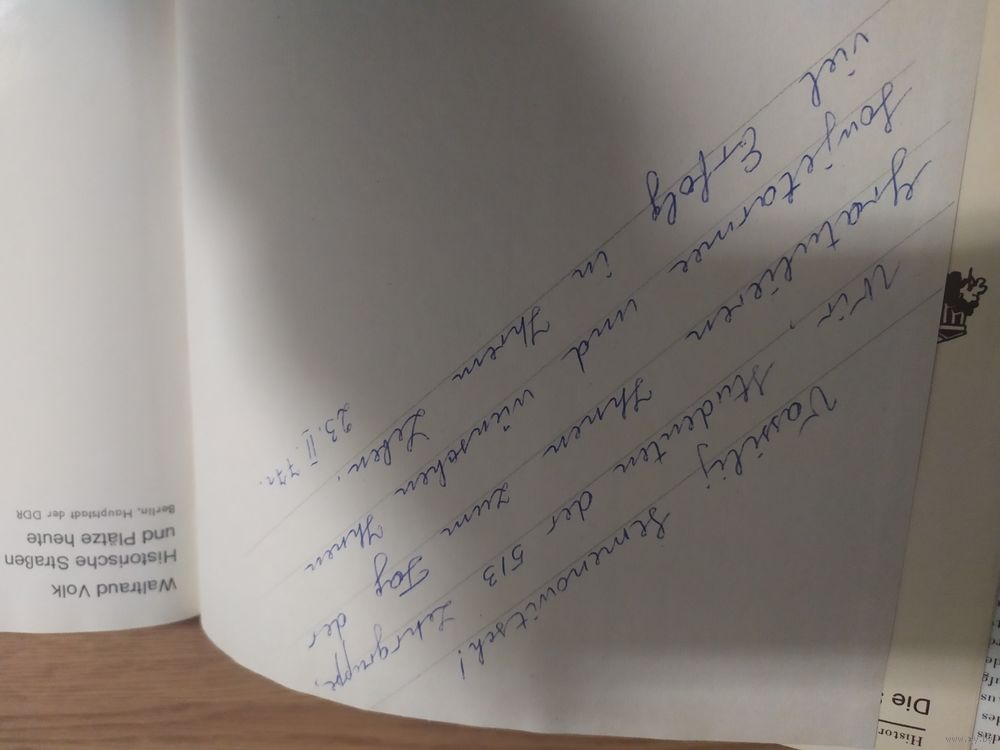 Vassilij Semenowitsch!
Wir, Studenten der 513 Lehrgruppe,
gratulieren Ihnen zum Tag der
Sowjetarmee und wünschen Ihnen
viel Erfolg in Ihrem Leben.
23.II.77г.
Waltraud Volk
Historische Straßen
und Plätze heute
Berlin, Hauptstadt der DDR
Die
Histor